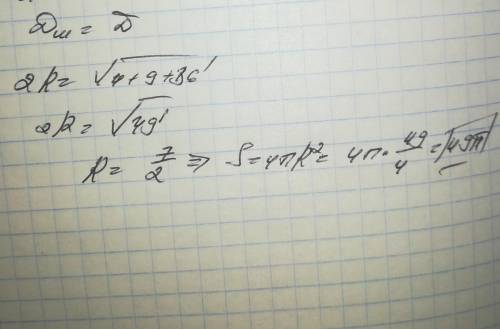 Dш = D
2R = √4+9+36
2R = √49
R = 7/2 ⇒ S = 4πR² = 4π · 49/4 = 49π